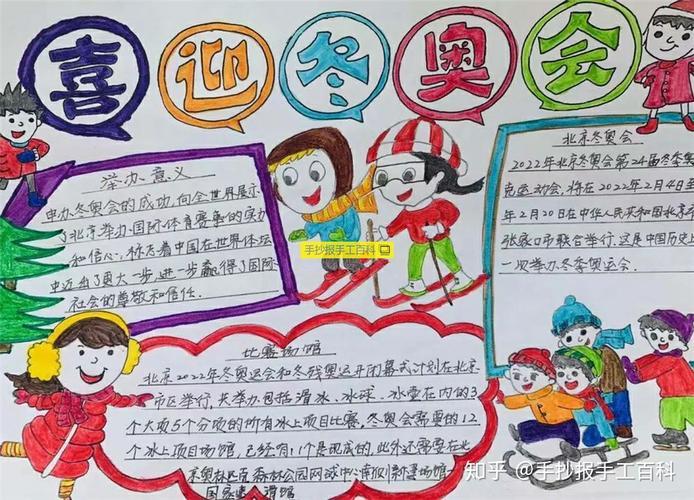 喜迎冬奥会
举办意义
申办冬奥会的成功,向全世界展示
了北京举办国际体育赛事的实力
和信心,标志着中国在世界体坛
中迈向了更大一步,进一步赢得了国际
社会的尊敬和信任.
手抄报手工百科
北京冬奥会
2022年北京冬奥会第24届冬季奥
克运动会,将在2022年2月4日至
年2月20日在中华人民共和国北京
张家口市联合举行.这是中国历史上
一次举办冬季奥运会.
比赛场馆
北京2022年冬奥运会和冬残奥运开闭幕式计划在北京
市区举行,共举办包括滑冰、冰球、冰壶在内的3
个大项5个分项的所有冰上项目比赛,冬奥会需要的12
个冰上项目场馆,已经有11个是现成的,此外还需要在北
京奥林匹克森林公园网球中心南侧新建场馆一
国家速滑馆
知乎 @手抄报手工百科